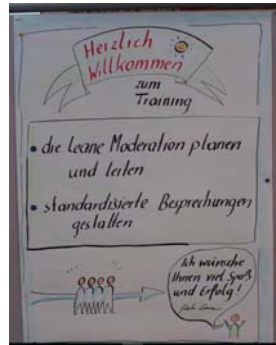 Herzlich
Willkommen
zum
Training
• die leane Moderation planen
und leiten
• standardisierte Besprechungen
gestalten
Ich wünsche
Ihnen viel Spaß
und Erfolg!